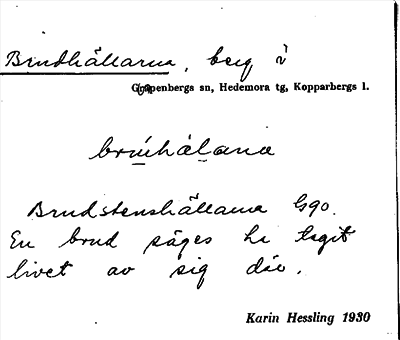 Brudhällarna, berg i
Garpenbergs sn, Hedemora tg, Kopparbergs l.
brúhälana
Brudstenshällarna G90.
En brud säges ha tagit
livet av sig där.
Karin Hessling 1930